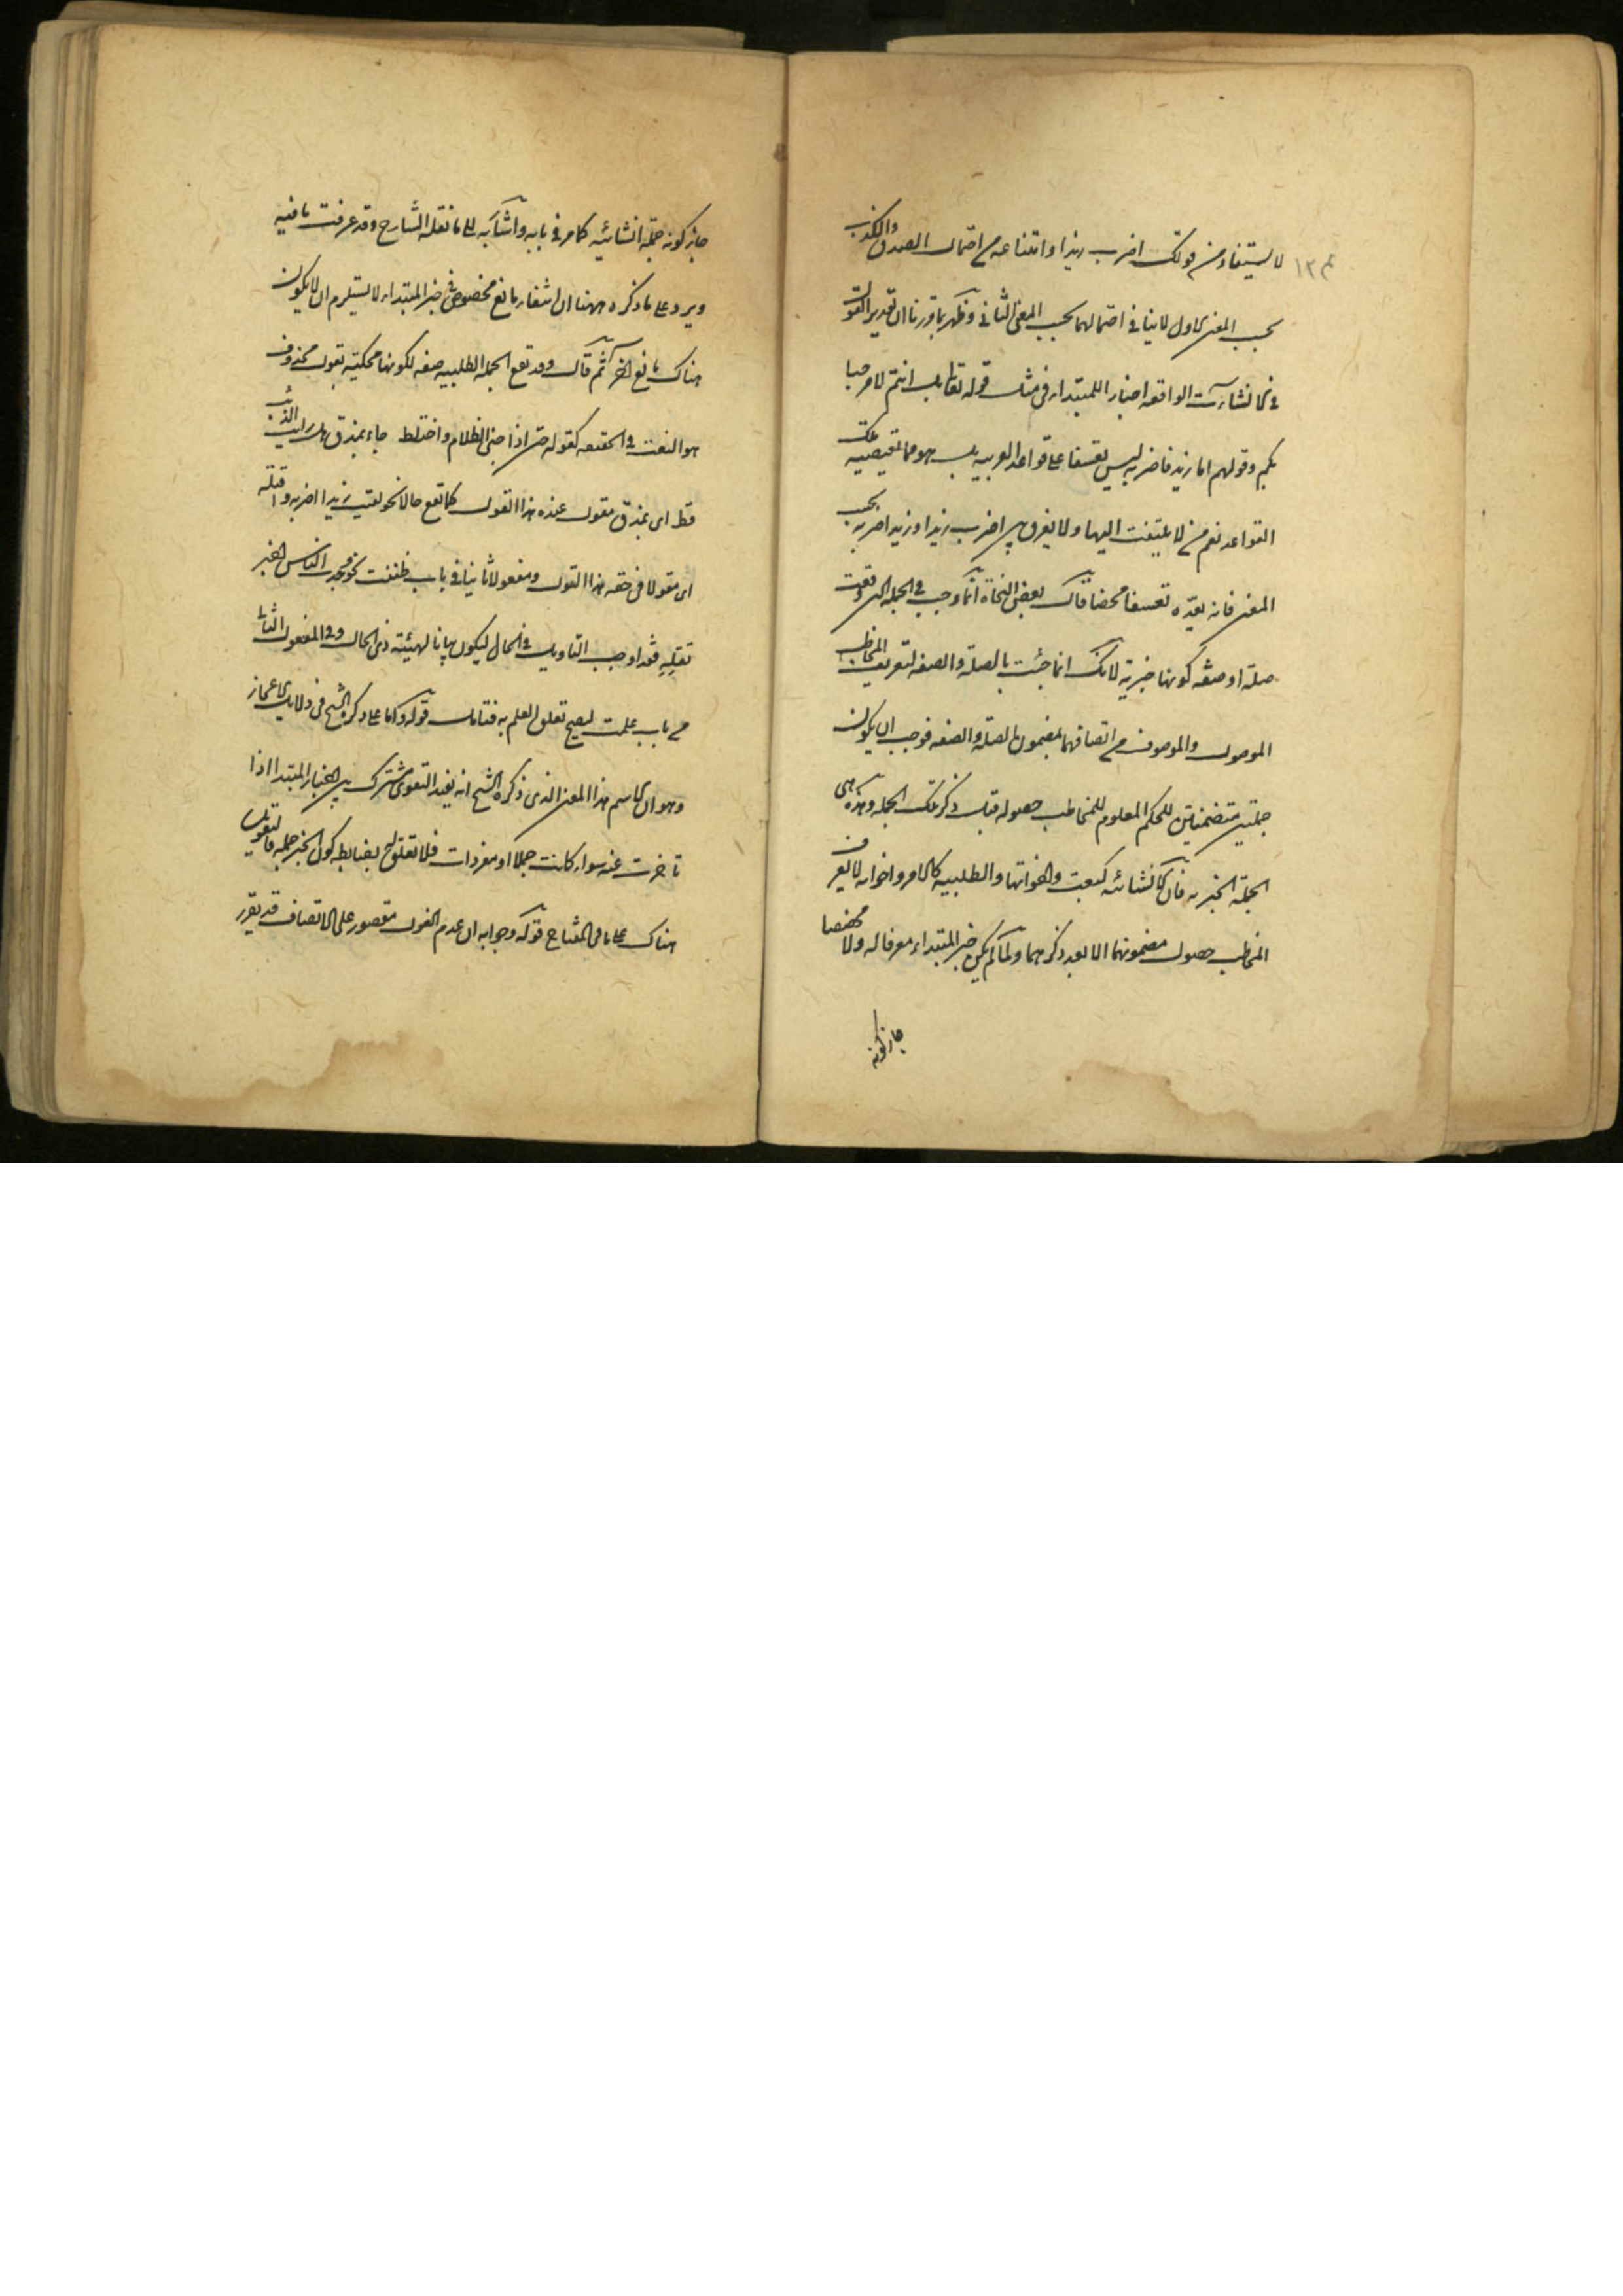 ١٣٤
لا يستفاد من قولك اضرب زيدا وامتناعه من احتمال الصدق والكذب
بحسب المعنى الاول لا ينافي احتمالهما بحسب المعنى الثاني وظهر بما قررنا ان تقدير القول
في الانشاءات الواقعة اخبارا للمبتداء في مثل قوله تعالى بل انتم لا مرحبا
بكم وقولهم اما زيد فاضربه ليس تعسفا على قواعد العربية بل هو مما تقتضيه تلك
القواعد نعم من لا يلتفت اليها ولا يفرق بين اضرب زيدا وزيد اضربه بحسب
المعنى فانه يعده تعسفا محضا قال بعض النحاة انما وجب في الجملة التي وقعت
صلة او صفة كونها خبرية لانك انما جئت بالصلة والصفة لتعريف المخاطب
الموصول والموصوف من اتصافهما بمضمون الصلة والصفة فوجب ان يكون
جملتين متضمنتين للحكم المعلوم للمخاطب حصوله قبل ذكر تلك الجملة وهذه هي
الجملة الخبرية فان الانشائية كبعت واخواتها والطلبية كالامر واخواته لا يعرف
المخاطب حصول مضمونهما الا بعد ذكرهما ولما لم يكن خبر المبتداء معرفا له ولا مخصصا
جاز كونه
جاز كونه جملة انشائية كما مر في بابه واشار به الى ما نقله الشارح وقد عرفت ما فيه
ويرد على ما ذكره ههنا ان انتفاء مانع مخصوص في خبر المبتداء لا يستلزم ان لا يكون
هناك مانع آخر ثم قال وقد تقع الجملة الطلبية صفة لكونها محكية بقول محذوف
هو النعت في الحقيقة كقوله حتى اذا جن الظلام واختلط جاء بمذق هل رايت الذئب
قط اى بمذق مقول عنده هذا القول كما تقع حالا نحو لقيت زيدا اضربه واقتله
اى مقولا في حقه هذا القول ومفعولا ثانيا في باب ظننت نحو وجدت الناس اخبر
تقله فقد اوجب التاويل في الحال ليكون بيانا لهيئة ذي الحال وفي المفعول الثاني
من باب علمت ليصح تعلق العلم به فتامل قوله واما على ما ذكره الشيخ في دلايل الاعجاز
وهو ان الاسم هذا المعنى الذي ذكره الشيخ انه يفيد التقوى مشترك بين اخبار المبتدا اذا
تاخرت عنه سواء كانت جملا او مفردات فلا تعلق له بضابطة كون الخبر جملة فالتعويل
هناك على ما في المفتاح قوله وجوابه ان عدم الغول مقصور على الاتصاف قد يقرر